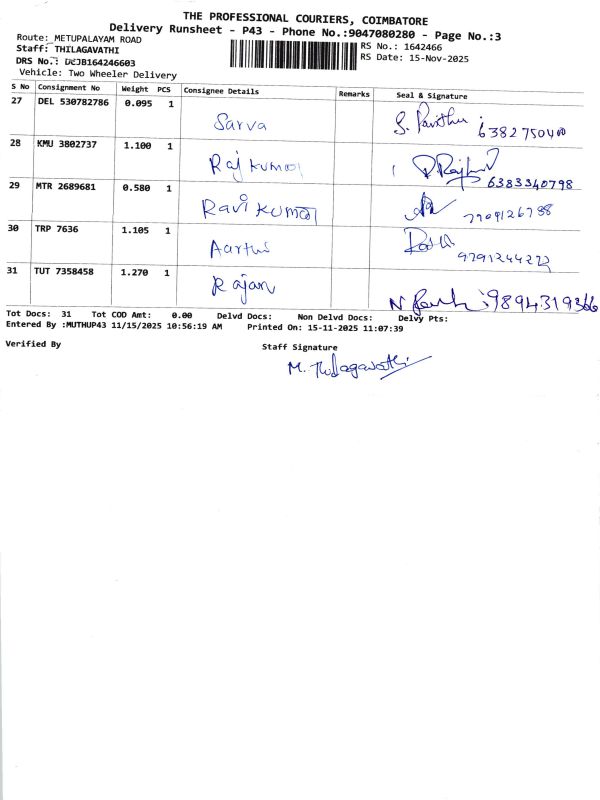 THE PROFESSIONAL COURIERS, COIMBATORE
Delivery Runsheet - P43 - Phone No.:9047080280 - Page No.:3
Route: METUPALAYAM ROAD
RS No.: 1642466
Staff: THILAGAVATHI
RS Date: 15-Nov-2025
DRS No.: DEJB164246603
Vehicle: Two Wheeler Delivery
S No Consignment No Weight PCS Consignee Details Remarks Seal & Signature
27 DEL 530782786 0.095 1 Sarva
28 KMU 3802737 1.100 1 Raj kumar 6383340798
29 MTR 2689681 0.580 1 Ravi kumar 7909126788
30 TRP 7636 1.105 1 Aarthi
31 TUT 7358458 1.270 1 Rajan 9894319366
Tot Docs: 31 Tot COD Amt: 0.00 Delvd Docs: Non Delvd Docs: Delvy Pts:
Entered By :MUTHUP43 11/15/2025 10:56:19 AM Printed On: 15-11-2025 11:07:39
Verified By Staff Signature
M. Thilagavathi